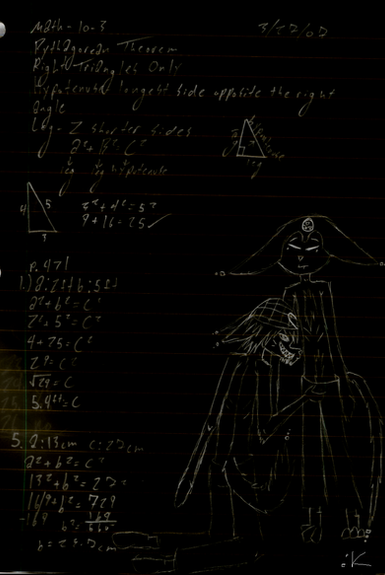 Math-10-3
Pythagorean Theorem
Right Triangles Only
Hypotenuse longest side opposite the right
angle
Leg- 2 shorter sides
a²+b²=c²
leg leg hypotenuse
hypotenuse
leg
4 5
3
3²+4²=5²
9+16=25 ✓
p. 471
1.) a:2ft b:5ft
a²+b²=c²
2²+5²=c²
4+25=c²
29=c²
√29=c
5.4ft=c
5. a:13cm
a²+b²=c²
13²+b²=
169+b²=729
-169
b²=
K